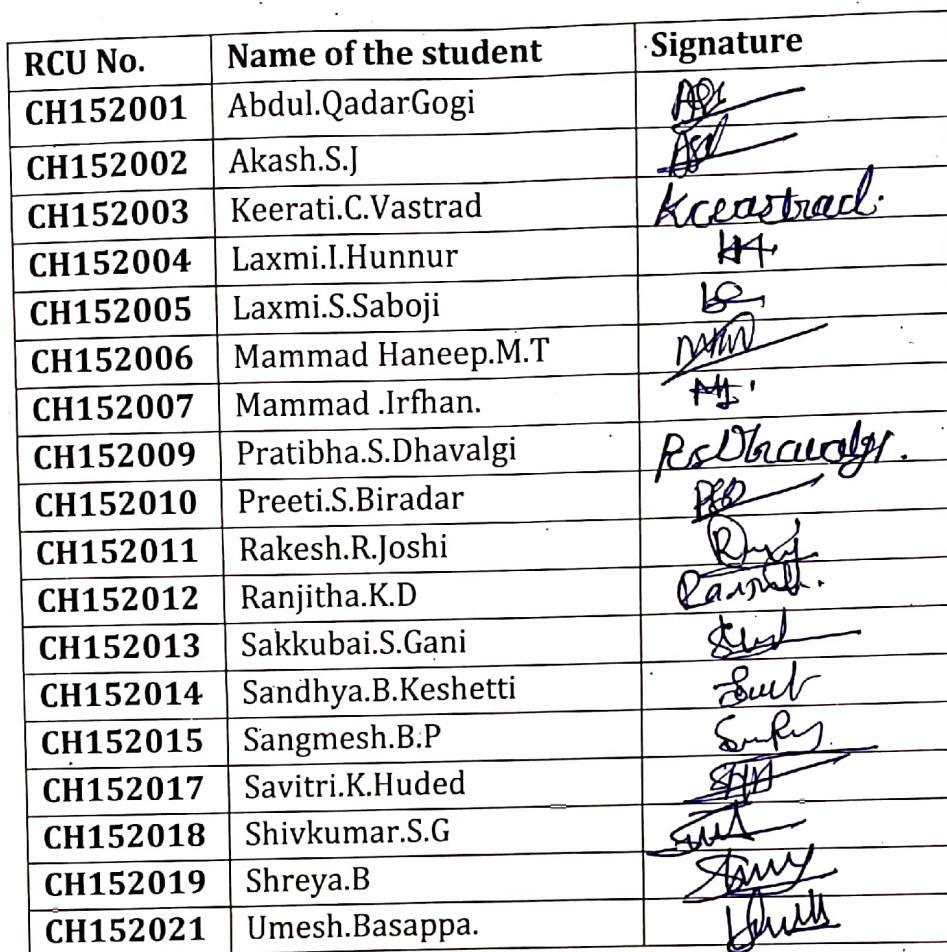 RCU No. Name of the student Signature
CH152001 Abdul.QadarGogi
CH152002 Akash.S.J
CH152003 Keerati.C.Vastrad
CH152004 Laxmi.I.Hunnur
CH152005 Laxmi.S.Saboji
CH152006 Mammad Haneep.M.T
CH152007 Mammad .Irfhan.
CH152009 Pratibha.S.Dhavalgi
CH152010 Preeti.S.Biradar
CH152011 Rakesh.R.Joshi
CH152012 Ranjitha.K.D
CH152013 Sakkubai.S.Gani
CH152014 Sandhya.B.Keshetti
CH152015 Sangmesh.B.P
CH152017 Savitri.K.Huded
CH152018 Shivkumar.S.G
CH152019 Shreya.B
CH152021 Umesh.Basappa.